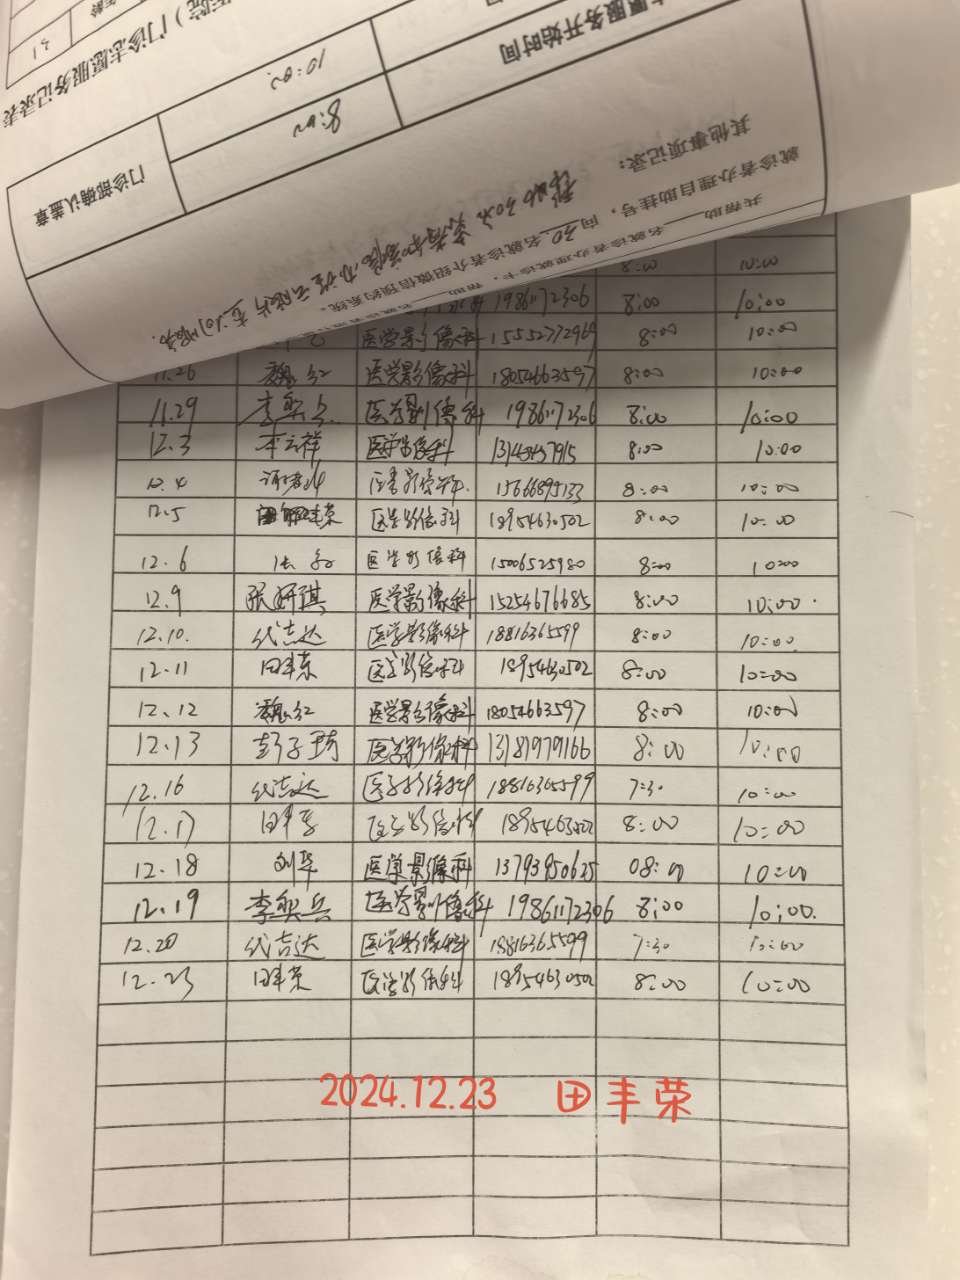 门诊志愿服务记录表
志愿服务开始时间
10:02
8:02
门诊部确认盖章
其他事项记录:
就诊者办理自助挂号,向30名就诊者介绍微信预约系统,
共帮助 名就诊者办理就诊卡,帮助
8:00 10:00
19861172306 8:00 10:00
医学影像科 15552772969 8:00 10:00
11.26 魏红 医学影像科 18054663597 8:00 10:00
11.29 李奕兵 医学影像科 19861172306 8:00 10:00
12.3 李云祥 医学影像科 8:00 10:00
12.4 15666895133 8:00 10:00
12.5 田丰荣 医学影像科 18954630502 8:00 10:00
12.6 医学影像科 15006525980 8:00 10:00
12.9 张妍琪 医学影像科 15254676685 8:00 10:00.
12.10. 代吉达 医学影像科 18816365599 8:00 10:00.
12.11 田丰荣 医学影像科 18954630502 8:00 10:00
12.12 魏红 医学影像科 18054663597 8:00 10:00
12.13 彭子琦 医学影像科 13181979166 8:00 10:00
12.16 代吉达 医学影像科 18816365599 7:30 10:00
12.17 田丰荣 医学影像科 18954630502 8:00 10:00
12.18 刘华 医学影像科 13793950625 08:00 10:00
12.19 李奕兵 医学影像科 19861172306 8:00 10:00.
12.20 代吉达 医学影像科 18816365599 7:30 10:00
12.23 田丰荣 医学影像科 18954630502 8:00 10:00
2024.12.23 田丰荣